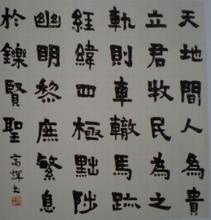 天地間人為貴
立君牧民為之
軌則車轍馬跡
經緯四極黜陟
幽明黎庶繁息
於鑠賢聖